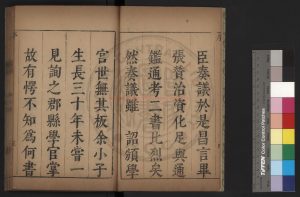 臣奏議於是昌言畢
張資治資化足與通
鑑通考二書比烈矣
然奏議雖 詔頒學
宮世無其板余小子
生長三十年未嘗一
見詢之郡縣學官掌
故有愕不知為何書